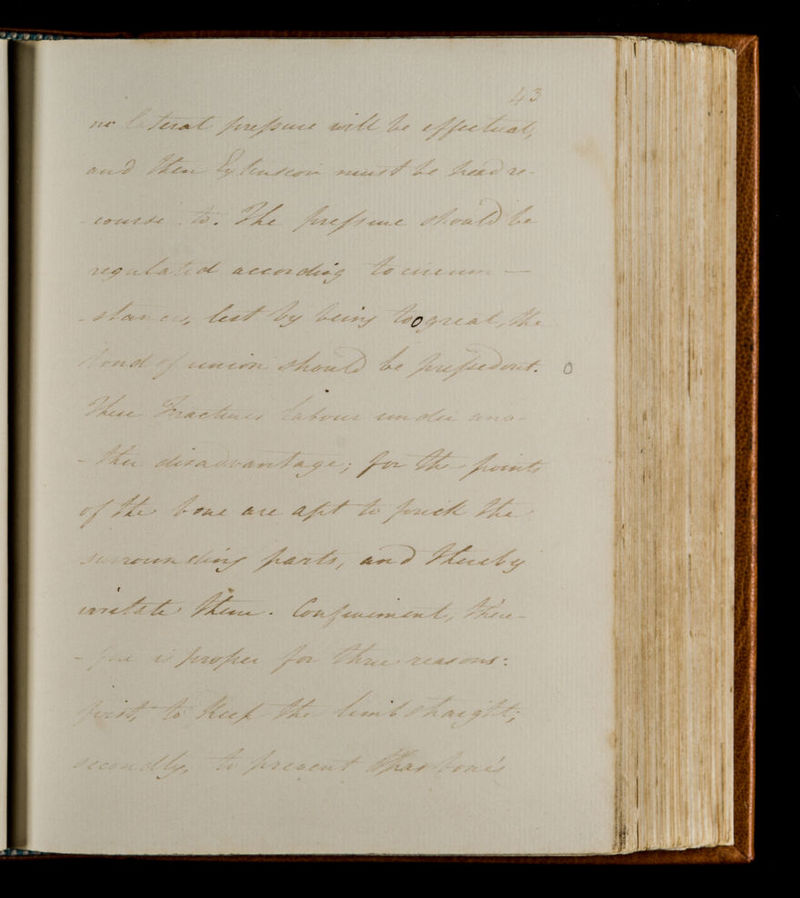 43
no lateral pressure will be effectual,
and then Extension must be had re-
-course to. The pressure should be
regulated according to circum-
-stances, lest by being too great, the
bond of union should be pressed out. o
These Fractures labour under ano-
-ther disadvantage; for the points
of the bone are apt to prick the
surrounding parts, and thereby
irritate them. Confinement, there-
-fore is proper for three reasons:
first, to keep the limb straight;
secondly, to prevent bone's